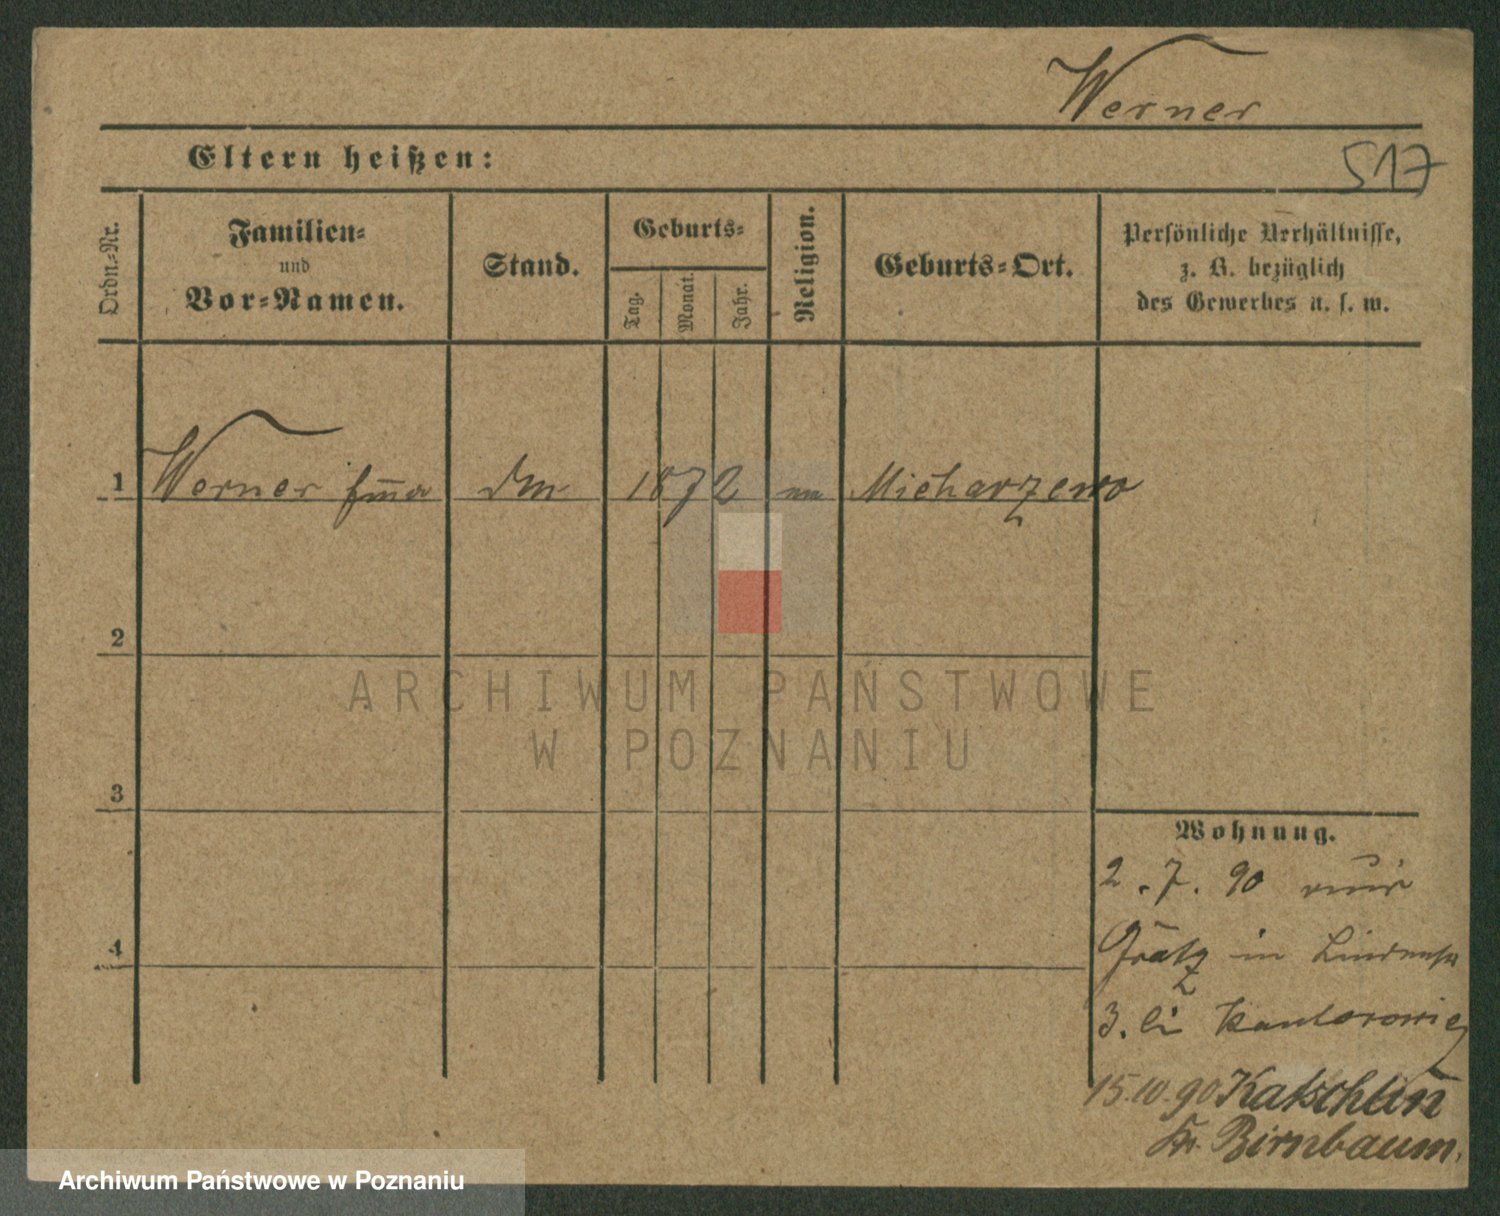 Werner
Eltern heißen:
517
Ordn.-Nr.
Familien-
und
Vor-Namen.
Stand.
Geburts-
Tag.
Monat.
Jahr.
Religion.
Geburts-Ort.
Persönliche Verhältnisse,
z. B. bezüglich
des Gewerbes u. s. w.
1 Werner 1872 Micharzewo
2
3
4
ARCHIWUM PAŃSTWOWE
W POZNANIU
Wohnung.
2.7.90
Grätz in
3. bei Kantorowicz
15.10.90 Katschlin
Kr. Birnbaum.
Archiwum Państwowe w Poznaniu